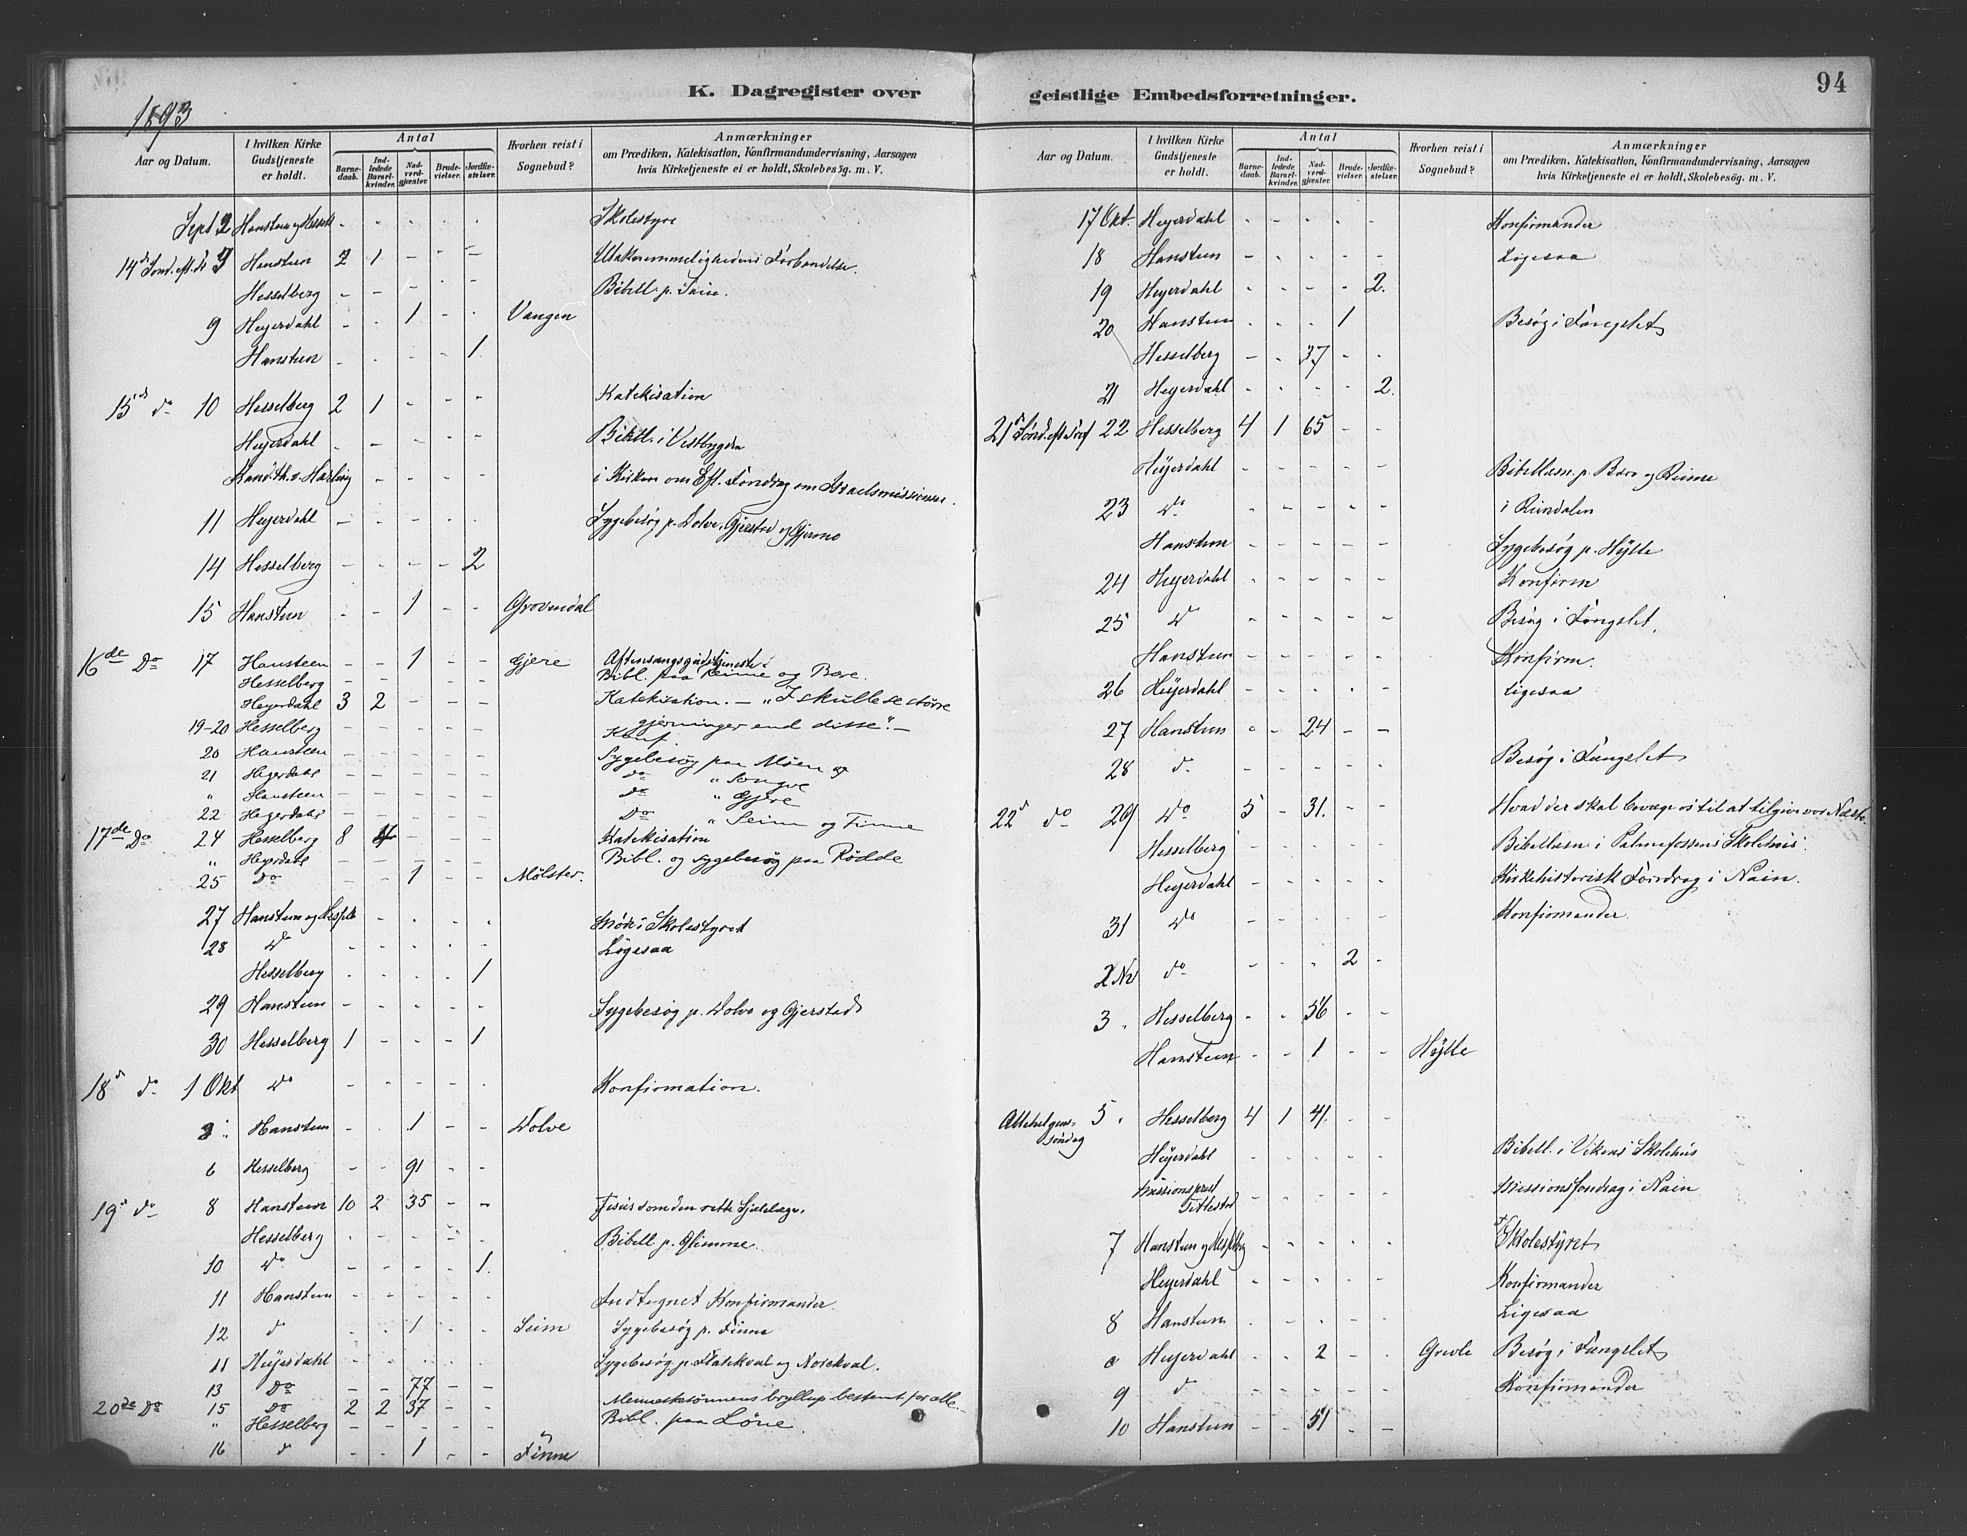 K. Dagregister over
1893
Aar og Datum.
I hvilken Kirke Gudstjeneste er holdt.
Antal
Barnedaab.
Indledede Barselkvinder.
Nadverdgjester.
Brudevielser.
Jordfæstelser.
Hvorhen reist i Sognebud?
Anmærkninger
om Prædiken, Katekisation, Konfirmandundervisning, Aarsagen
hvis Kirketjeneste ei er holdt, Skolebesøg. m. V.
Sept. 2 Hansteen og - - - - - Skolestyre
14d Sønd. eft. Tr 3 Hansteen 2 1 - - - Utaknemmelighedens Forbandelse.
Hesselberg - - - - - Bibell. p.
9 Heyerdahl - - 1 - - Vangen
Hansteen - - - - 1.
15d do 10 Hesselberg 2 1 - - - Katekisation
Heyerdahl - - - - - Bibell. i Vestbygden
Kand. th. v. Harling - - - - - i Kirken om Eft. Foredrag om Israelsmissionen.
11 Heyerdahl - - - - - Sygebesøg p. Dolve, Gjerstad og Gjermo
14 Hesselberg - - - - 2
15 Hansteen - - 1 - - Grovendal
16de Do 17 Hansteen - - 1 - - Gjere Aftensangsgudstjeneste.
Hesselberg - - - - - Bibl. paa Reime og Bøe.
Heyerdahl 3 2 - - - Katekisation. - "I skulle se større
gjerninger end disse". -
19-20 Hesselberg - - - - - Konf.
20 Hansteen - - - - - Sygebesøg paa Møen og
21 Heyerdahl - - - - - do "
" Hansteen - - - - - do " Gjere
22 Heyerdahl - - - - - Do " Seim og Finne
17de Do 24 Hesselberg 8 4 - - - Katekisation
" Heyerdahl - - - - - Bibl. og sygebesøg paa Rødde
25 Do - - 1 - - Mølster.
27 Hansteen og - - - - - Møde i Skolestyret
28 Do - - - - - Ligesaa
Hesselberg - - - - 1
29 Hansteen - - - - - Sygebesøg p. Dolve og Gjerstad
30 Hesselberg 1 - - - 1
18d do 1 Okt Do - - - - - Konfirmation.
3 " Hansteen - - 1 - - Dolve
6 Hesselberg - - 91 - -
19d do 8 Hansteen 10 2 35 - - Jesus som den rette Sjælelæge.
Hesselberg - - - - - Bibell. p. Glimme.
10 Do - - - - 1.
11 Hansteen - - - - - Indtegnet Konfirmander.
12 d - - 1 - - Seim Sygebesøg p. Finne
11 Heyerdahl - - - - - Sygebesøg p. Flatekval og Norekval.
13 Do - - 77 - -
20de Do 15 Do 2 2 37 - - Menneskesønnens bryllup bestemt for alle.
" Hesselberg - - - - - Bibl. paa Løne.
16 d - - 1 - - Finne
geistlige Embedsforretninger.
94
Aar og Datum.
I hvilken Kirke Gudstjeneste er holdt.
Antal
Barnedaab.
Indledede Barselkvinder.
Nadverdgjester.
Brudevielser.
Jordfæstelser.
Hvorhen reist i Sognebud?
Anmærkninger
om Prædiken, Katekisation, Konfirmandundervisning, Aarsagen
hvis Kirketjeneste ei er holdt, Skolebesøg. m. V.
17 Okt. Heyerdahl - - - - - Konfirmander
18 Hansteen - - - - - Ligesaa
19 Heyerdahl - - - - 2.
20 Hansteen - - - 1 Besøg i Fængslet
Hesselberg - - 37 - -
21 Heyerdahl - - - - 2.
21d Sønd. eft. Tref 22 Hesselberg 4 1 65 - -
Heyerdahl - - - - - Bibellæsn. p. Børe og Reime
23 Do - - - - - i Rundalen
Hansteen - - - - - Sygebesøg p. Hylle
24 Heyerdahl - - - - - Konfirm
25 Do - - - - - Besøg i Fængslet.
Hansteen - - - - - Konfirm.
26 Heyerdahl - - - - - Ligesaa
27 Hansteen - - 24 - -
28 d. - - - - - Besøg i Fængslet
22d do 29 Do 5 - 31. - - Hvad der skal bevæge os til at tilgive vor Næste.
Hesselberg - - - - - Bibellæsn. i Palmafossens Skolehus.
Heyerdahl - - - - - Kirkehistorisk Foredrag i Nain.
31 Do - - - - - Konfirmander.
2 Nv do - - - 2 -
3 " Hesselberg - - 56 - -
Hansteen - - 1 - - Hylle
Allehelgenssøndag 5 " Hesselberg 4 1 41. - -
Heyerdahl Bibell. i Vikens Skolehus
Missionsprest - - - - - Missionsforedrag i Nain
7 Hansteen og - - - - - Skolestyret
Heyerdahl - - - - - Konfirmander
8 Hansteen - - - - - Ligesaa
Heyerdahl - - 2 - - Grevle Besøg i Fængslet
9 d - - - - - Konfirmander
10 Hansteen - - 51 - -